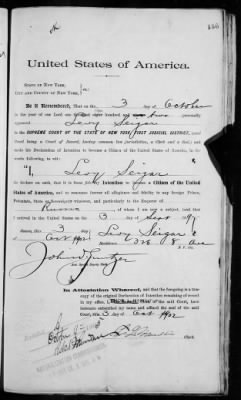 United States of America.
STATE OF NEW YORK,
CITY AND COUNTY OF NEW YORK, } ss.:
Be it Remembered, That on the 3 day of October
in the year of our Lord one thousand nine hundred and two personally
appeared Levy Seigar
the SUPREME COURT OF THE STATE OF NEW YORK, FIRST JUDICIAL DISTRICT, (said Court
being a Court of Record, having common law jurisdiction, a Clerk and a Seal) and
made his Declaration of Intention to become a Citizen of the United States of America, in the
words following, to wit:
"I, Levy Seigar
do declare on oath, that it is bona fide my intention to become a Citizen of the United
States of America, and to renounce forever all allegiance and fidelity to any foreign Prince,
Potentate, State or Sovereignty whatever, and particularly to the Emperor of
Russia of whom I am now a subject, and that
I arrived in the United States on the 3 day of Sept
Sworn, this 3 day of Levy Seigar
Oct 1902 Residence, 326 8 Ave
N.Y. City.
In Attestation Whereof, and that the foregoing is a true
copy of the original Declaration of Intention remaining of record
in my office, of the said Court, have
hereunto subscribed my name and affixed the seal of the
said Court, this 3 day of Oct 1902
Clerk.